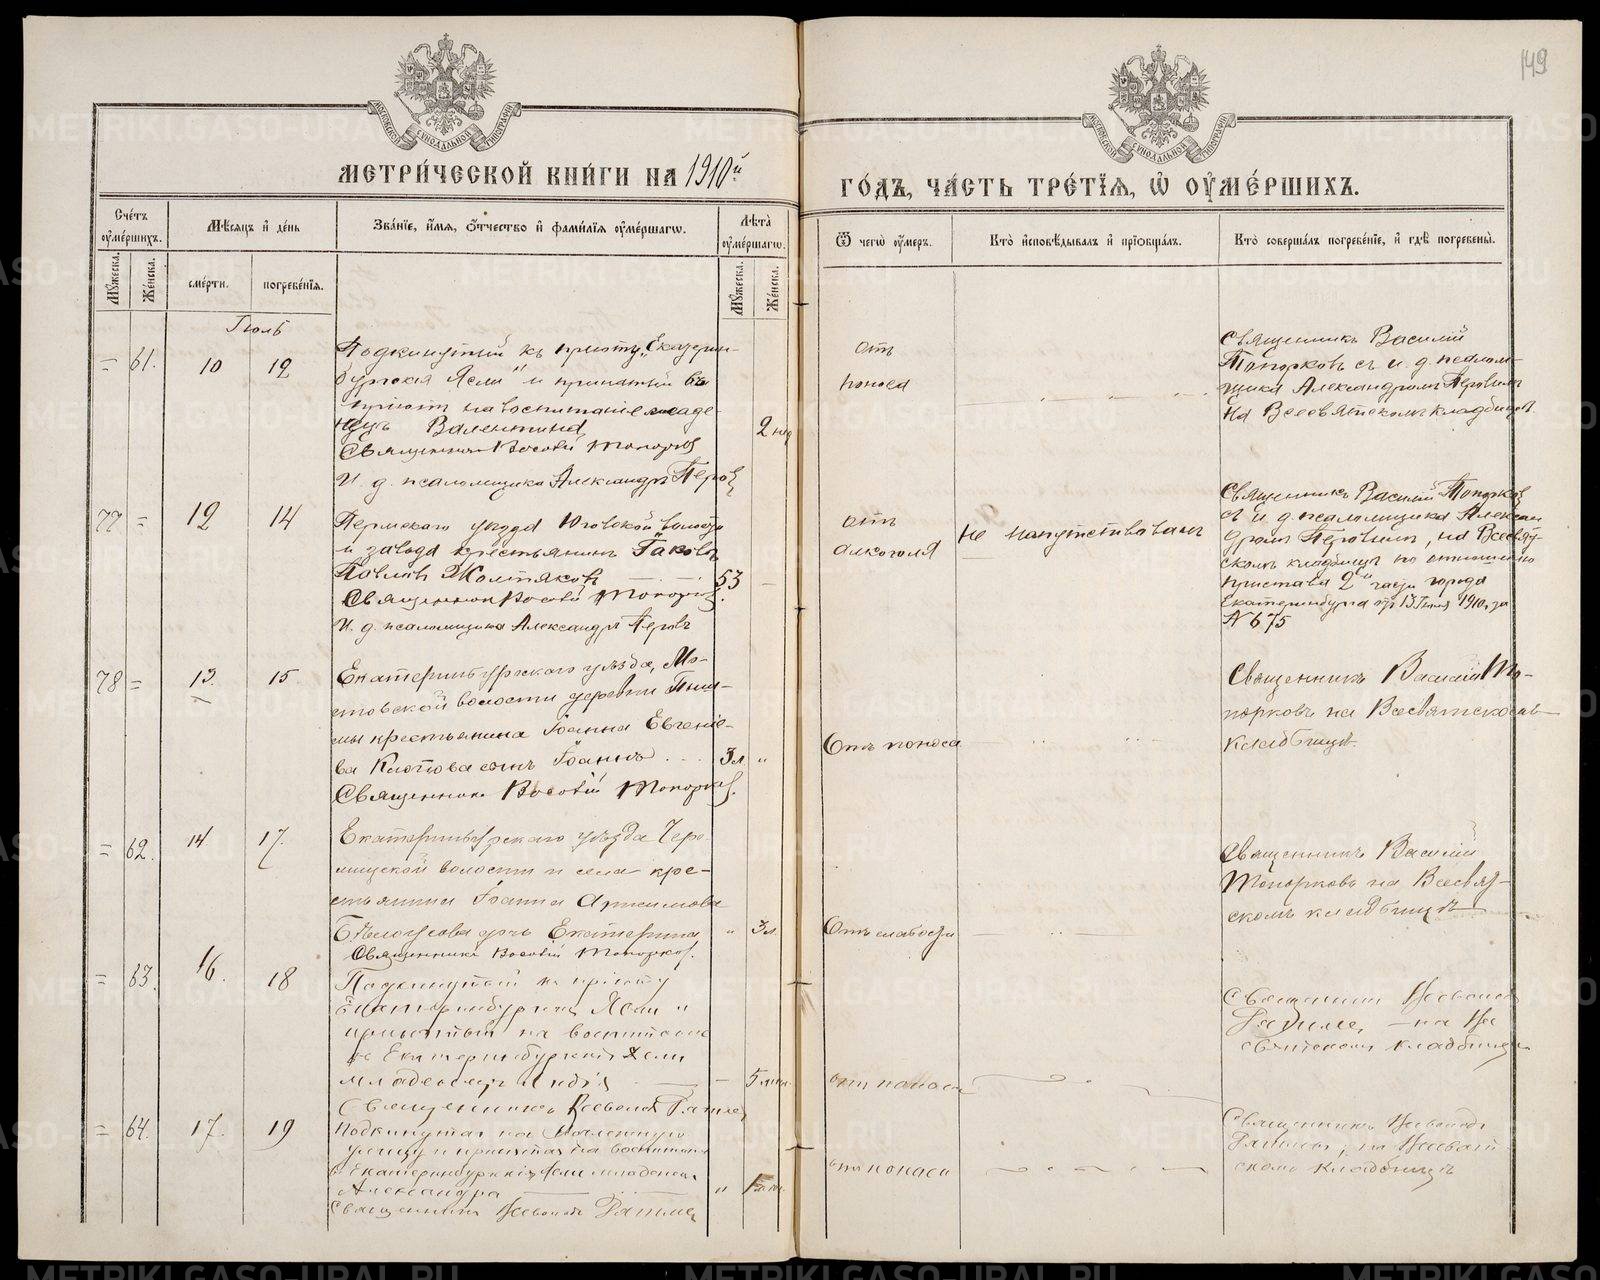 149
МОСКОВСКОЙ СѴНОДАЛЬНОЙ ТИПОГРАФІИ
МОСКОВСКОЙ СѴНОДАЛЬНОЙ ТИПОГРАФІИ
МЕТРИ́ЧЕСКОЙ КНИ́ГИ НА 1910й
ГО́ДЪ, ЧА́СТЬ ТРЕ́ТЇѦ, Ѡ҆ ОУ҆МЕ́РШИХЪ.
Сче́тъ оу҆ме́ршихъ.
Мѣ́сяцъ и҆ де́нь
Зва́нїе, и҆́мя, ѻ҆́тчество и҆ фами́лїя оу҆ме́ршагѡ.
Лѣ́та оу҆ме́ршагѡ.
Ѿ чегѡ̀ оу҆́меръ.
Кто̀ и҆сповѣ́дывалъ и҆ прїѡбща́лъ.
Кто̀ соверша́лъ погребе́нїе, и҆ гдѣ̀ погребены̀.
Мꙋ́жеска.
Же́нска.
сме́рти.
погребе́нїя.
Мꙋ́жеска.
Же́нска.
Іюль
= 61. 10 12
Подкинутый къ пріюту „Екатерин-
бургскія Ясли" и принятый въ
пріютъ на воспитаніе младе-
нецъ Валентина
2 нед
Священникъ Василій Топорков
И. д. псаломщика Александръ Перов
отъ
поноса
Священникъ Василій
Топорковъ съ и. д. псалом-
щика Александромъ Перовымъ
на Всесвятскомъ кладбищѣ
77 = 12 14
Пермскаго уѣзда Юговской волости
и завода крестьянинъ Іаковъ
Павловъ Желтяковъ 53 –
Священникъ Василій Топорков.
И. д. псаломщика Александръ Перовъ
отъ
алкоголя
Не напутствованъ
Священникъ Василій Топорковъ
съ и. д. псаломщика Алексан
дромъ Перовымъ, на Всесвят-
скомъ кладбищѣ по отношенію
пристава 2й части города
Екатеринбурга отъ 13 Іюля 1910 г. за
№ 675
78 = 13. 15
Екатеринбургскаго уѣзда, Мо-
стовской волости деревни Пыш-
мы крестьянина Іоанна Евгеніе-
ва сынъ Іоаннъ 3 л. "
Священникъ Василій Топорков.
Отъ поноса
Священникъ Василій То-
порковъ на Всесвятскомъ
кладбищѣ
= 62. 14 17.
Екатеринбургскаго уѣзда
волости и села кре-
стьянина Іоанна
Бѣлоусова дочь Екатерина " 3 л.
Священникъ Василій Топорков.
Отъ слабости
Священникъ Василій
Топорковъ на Всесвят-
скомъ кладбищѣ
= 63. 16. 18
Подкинутый къ пріюту
Екатеринбургскія Ясли и
принятый на воспитаніе
въ Екатеринбургскія Ясли
младенецъ Лидія – 5 мѣс.
Священникъ Всеволод
отъ поноса
Священникъ Всеволод
– на Все
святскомъ кладбищѣ
= 64. 17. 19
Подкинутая на
улицу и принятая на воспитан.
въ Екатеринбургскія Ясли младенец
Александра "
Священникъ Всеволодъ
отъ поноса
Священникъ Всеволодъ
на Всесвят
скомъ кладбищѣ
METRIKI.GASO-URAL.RU